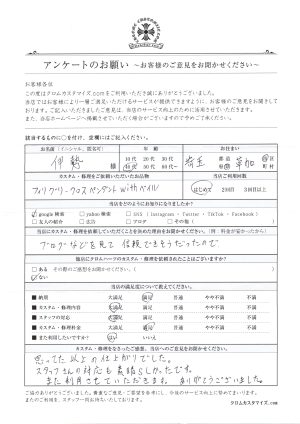 アンケートのお願い ～お客様のご意見をお聞かせください～
お客様各位
この度はクロムカスタマイズ.comをご利用いただき誠にありがとうございました。
当店ではお客様により一層ご満足いただけるサービスが提供できますように、お客様のご意見をお聞きしております。
ご記入いただきましたご意見は、当店のサービス向上のために活用させていただきます。
また、当店ホームページへ掲載させていただく場合がございますので予めご了承ください。
該当するものに○を付け、空欄にはご記入ください。
お名前（イニシャル、匿名可） 年齢 お住まい
伊勢 様 10代 20代 30代 40代 50代 60代～ 埼玉 都道府県 草加 市区町村
カスタム・修理をご依頼いただいたお品物 当店ご利用回数
フィリグリークロスペンダント withベイル はじめて 2回目 3回目以上
当店をどのようにお知りになりましたか？
google 検索 yahoo 検索 SNS（Instagram・Twitter・TikTok・Facebook）
友人の紹介 広告 ブログ その他（ ）
カスタム・修理を依頼していただくことを決めた理由をお聞かせください。
ブログなどを見て信頼できそうだったので
他店にクロムハーツのカスタム・修理を依頼されたことはございますか？
ある その際のご感想をお聞かせください
ない
当店の満足度について教えてください。
■ 納期 大満足 満足 普通 やや不満 不満
■ カスタム・修理内容 大満足 満足 普通 やや不満 不満
■ スタッフの対応 大満足 満足 普通 やや不満 不満
■ カスタム・修理料金 大満足 満足 普通 やや不満 不満
■ また利用したいですか？ はい いいえ
カスタム・修理をなさったご感想、当店へのご意見をお聞かせください。
思ってた以上の仕上がりでした。
スタッフさんの対応も素晴らしかったです。
また利用させていただきます。ありがとうございました。
ご協力ありがとうございました。貴重なご意見・ご要望を参考にし、今後のサービス向上に努めてまいります。
またのご利用を、スタッフ一同お待ちいたしております。
クロムカスタマイズ.com